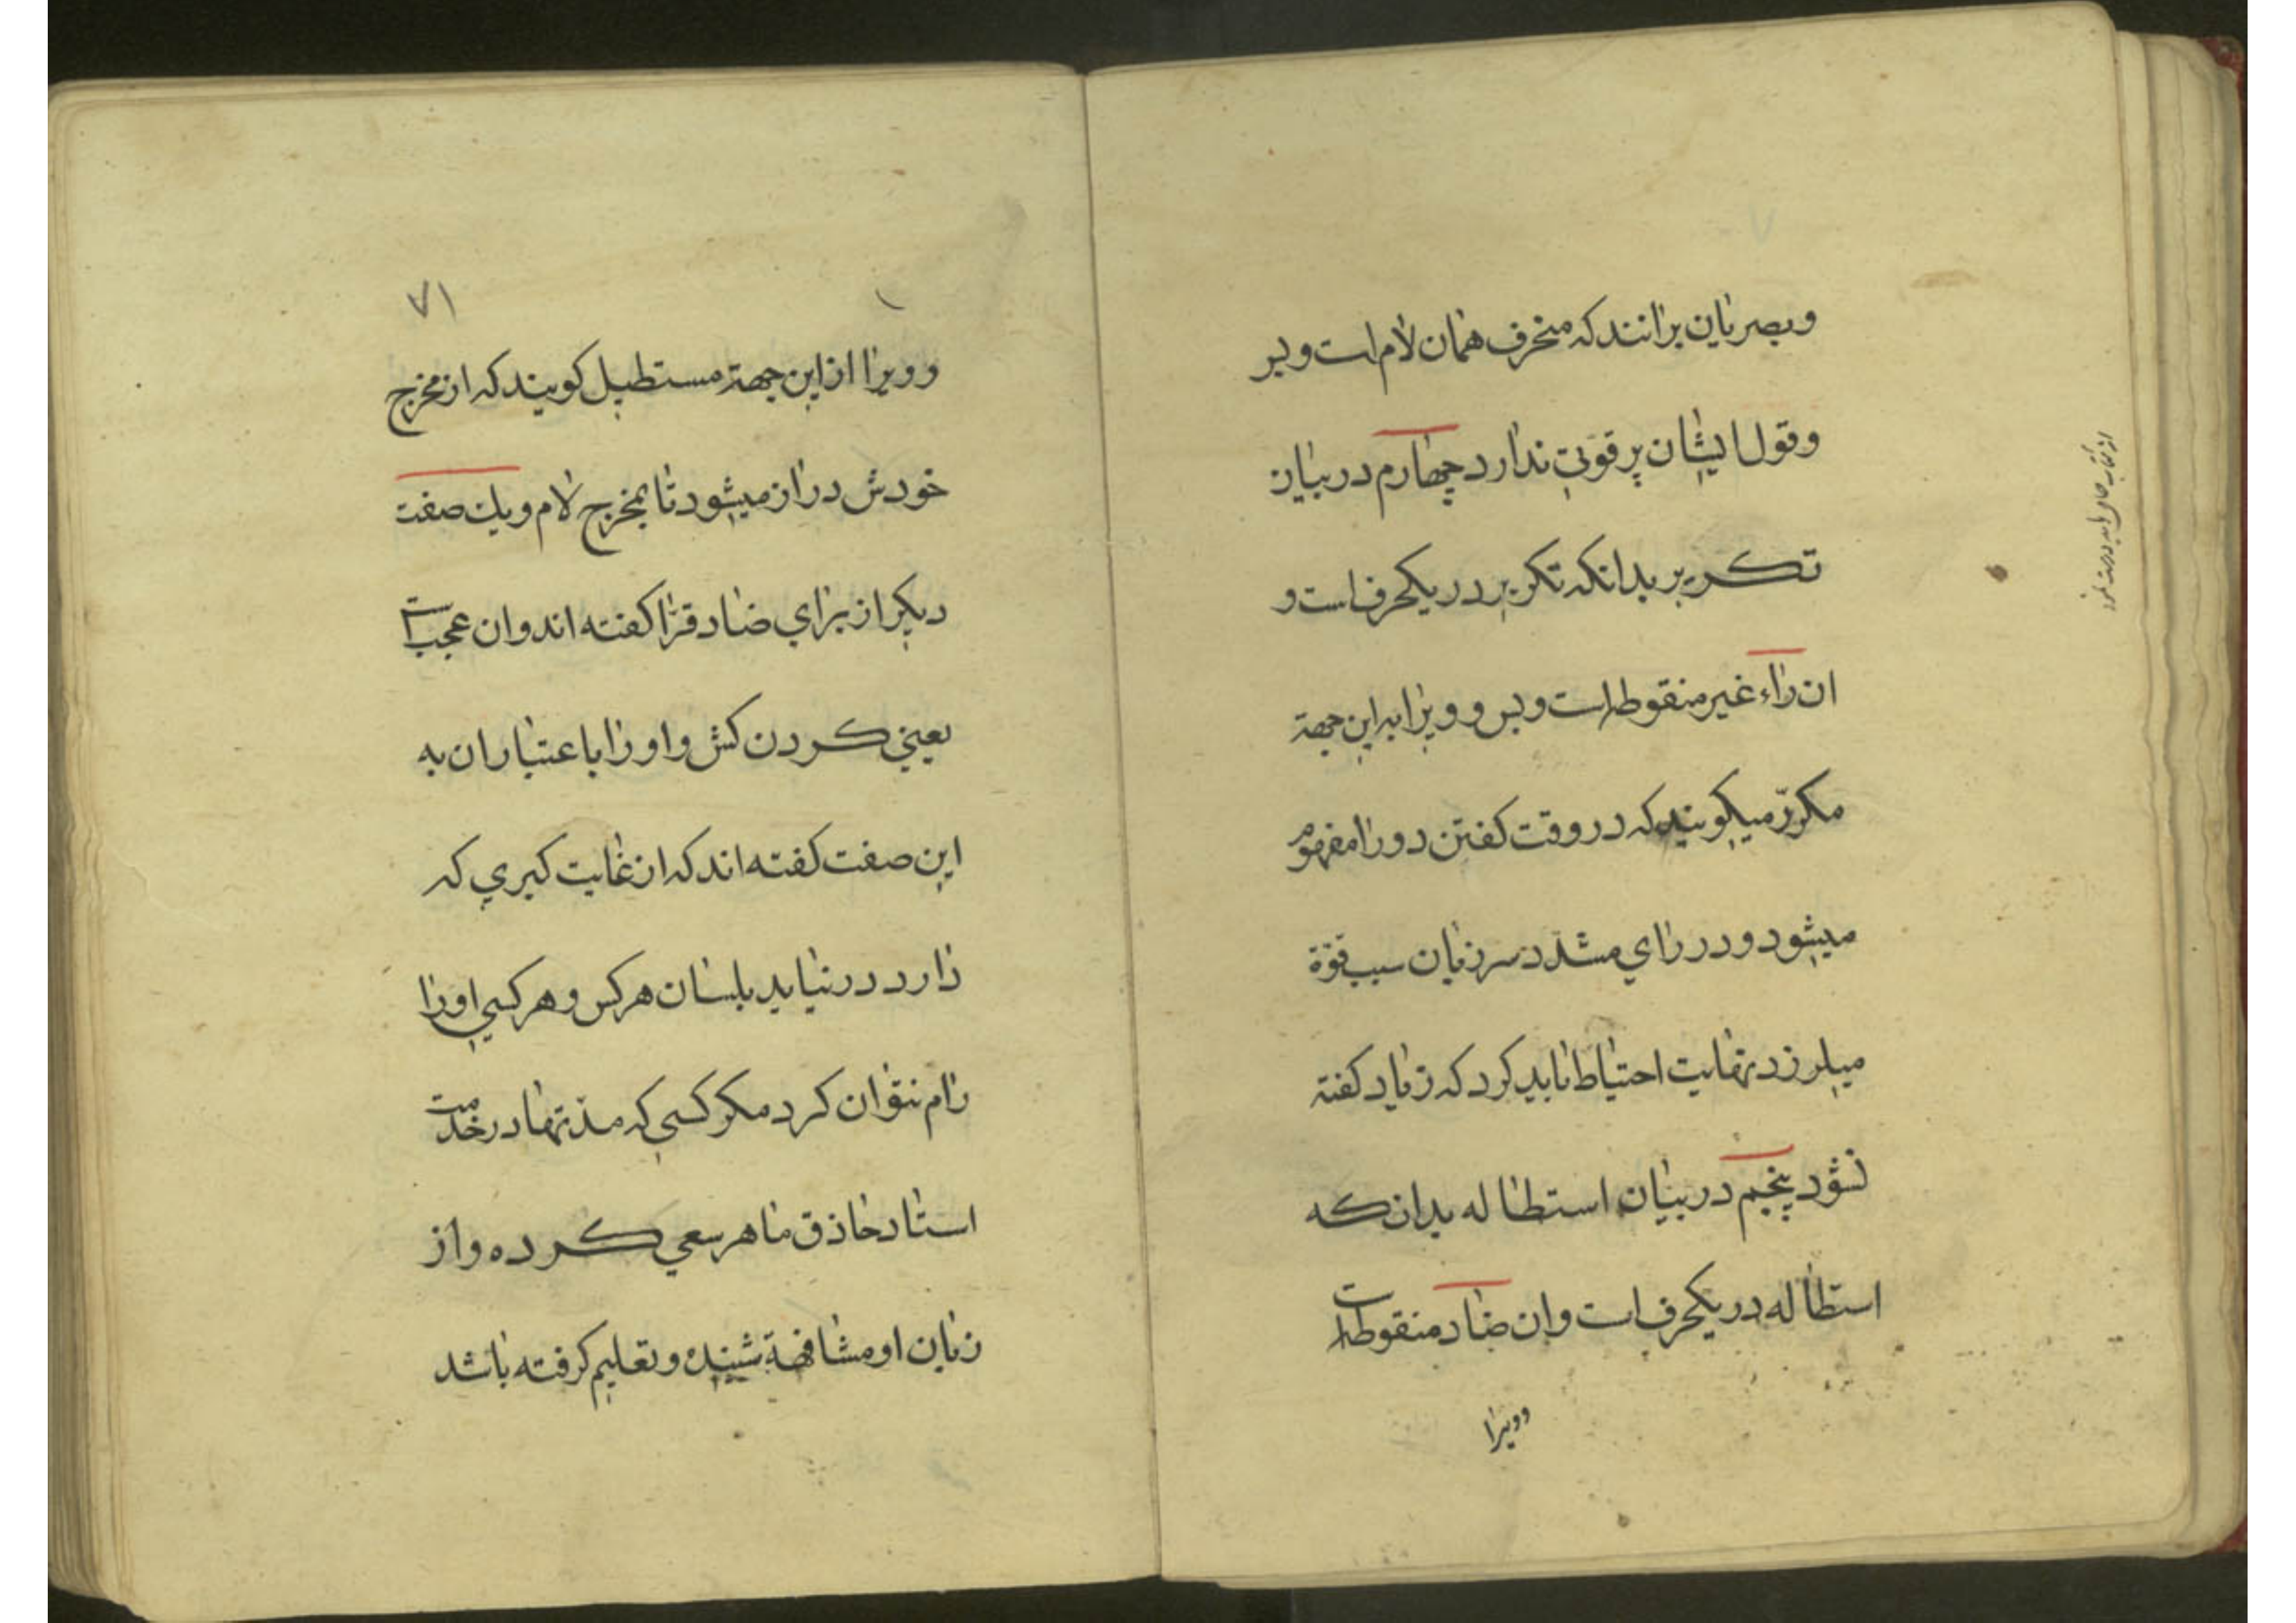 وبصریان برانند که منحرف همان لام است وبس
وقول ایشان پر قوّتی ندارد چهارم در بیان
تکریر بدانکه تکریر در یکحرف است و
ان راء غیر منقوطه است وبس وویرا به این جهة
مکرّر میکویند که در وقت کفتن دو را مفهوم
میشود و در رای مشدّد سر زبان سبب قوّة
میلرزد نهایت احتیاط باید کرد که زیاد کفته
نشود پنجم در بیان استطاله بدان که
استطاله در یکحرف است وان ضاد منقوطه است
وویرا
۷۱
وویرا از این جهة مستطیل کویند که از مخرج
خودش دراز میشود تا بمخرج لام ویك صفت
دیکر از برای ضاد قرّا کفته اند وان عجب است
یعنی کردن کش واو را باعتبار ان به
این صفت کفته اند که از غایت کیری که
دارد در نیاید بلسان هر کس وهر کسی او را
رام نتوان کرد مکر کسی که مدّتها در خدمت
استاد حاذق ماهر سعی کرده واز
زبان او مشافهة شنیده وتعلیم کرفته باشد